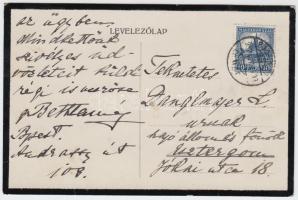 LEVELEZŐLAP
az ügyben.
Mindkettőnk
szivélyes üd-
vözleteit küldi
régi ismerőse
Bethlenné
Bpest.
Andrássy út
108.
Tekintetes
Danglmajer L.
urnak
hajóállomás főnök
Esztergom
Jókai utca 18.